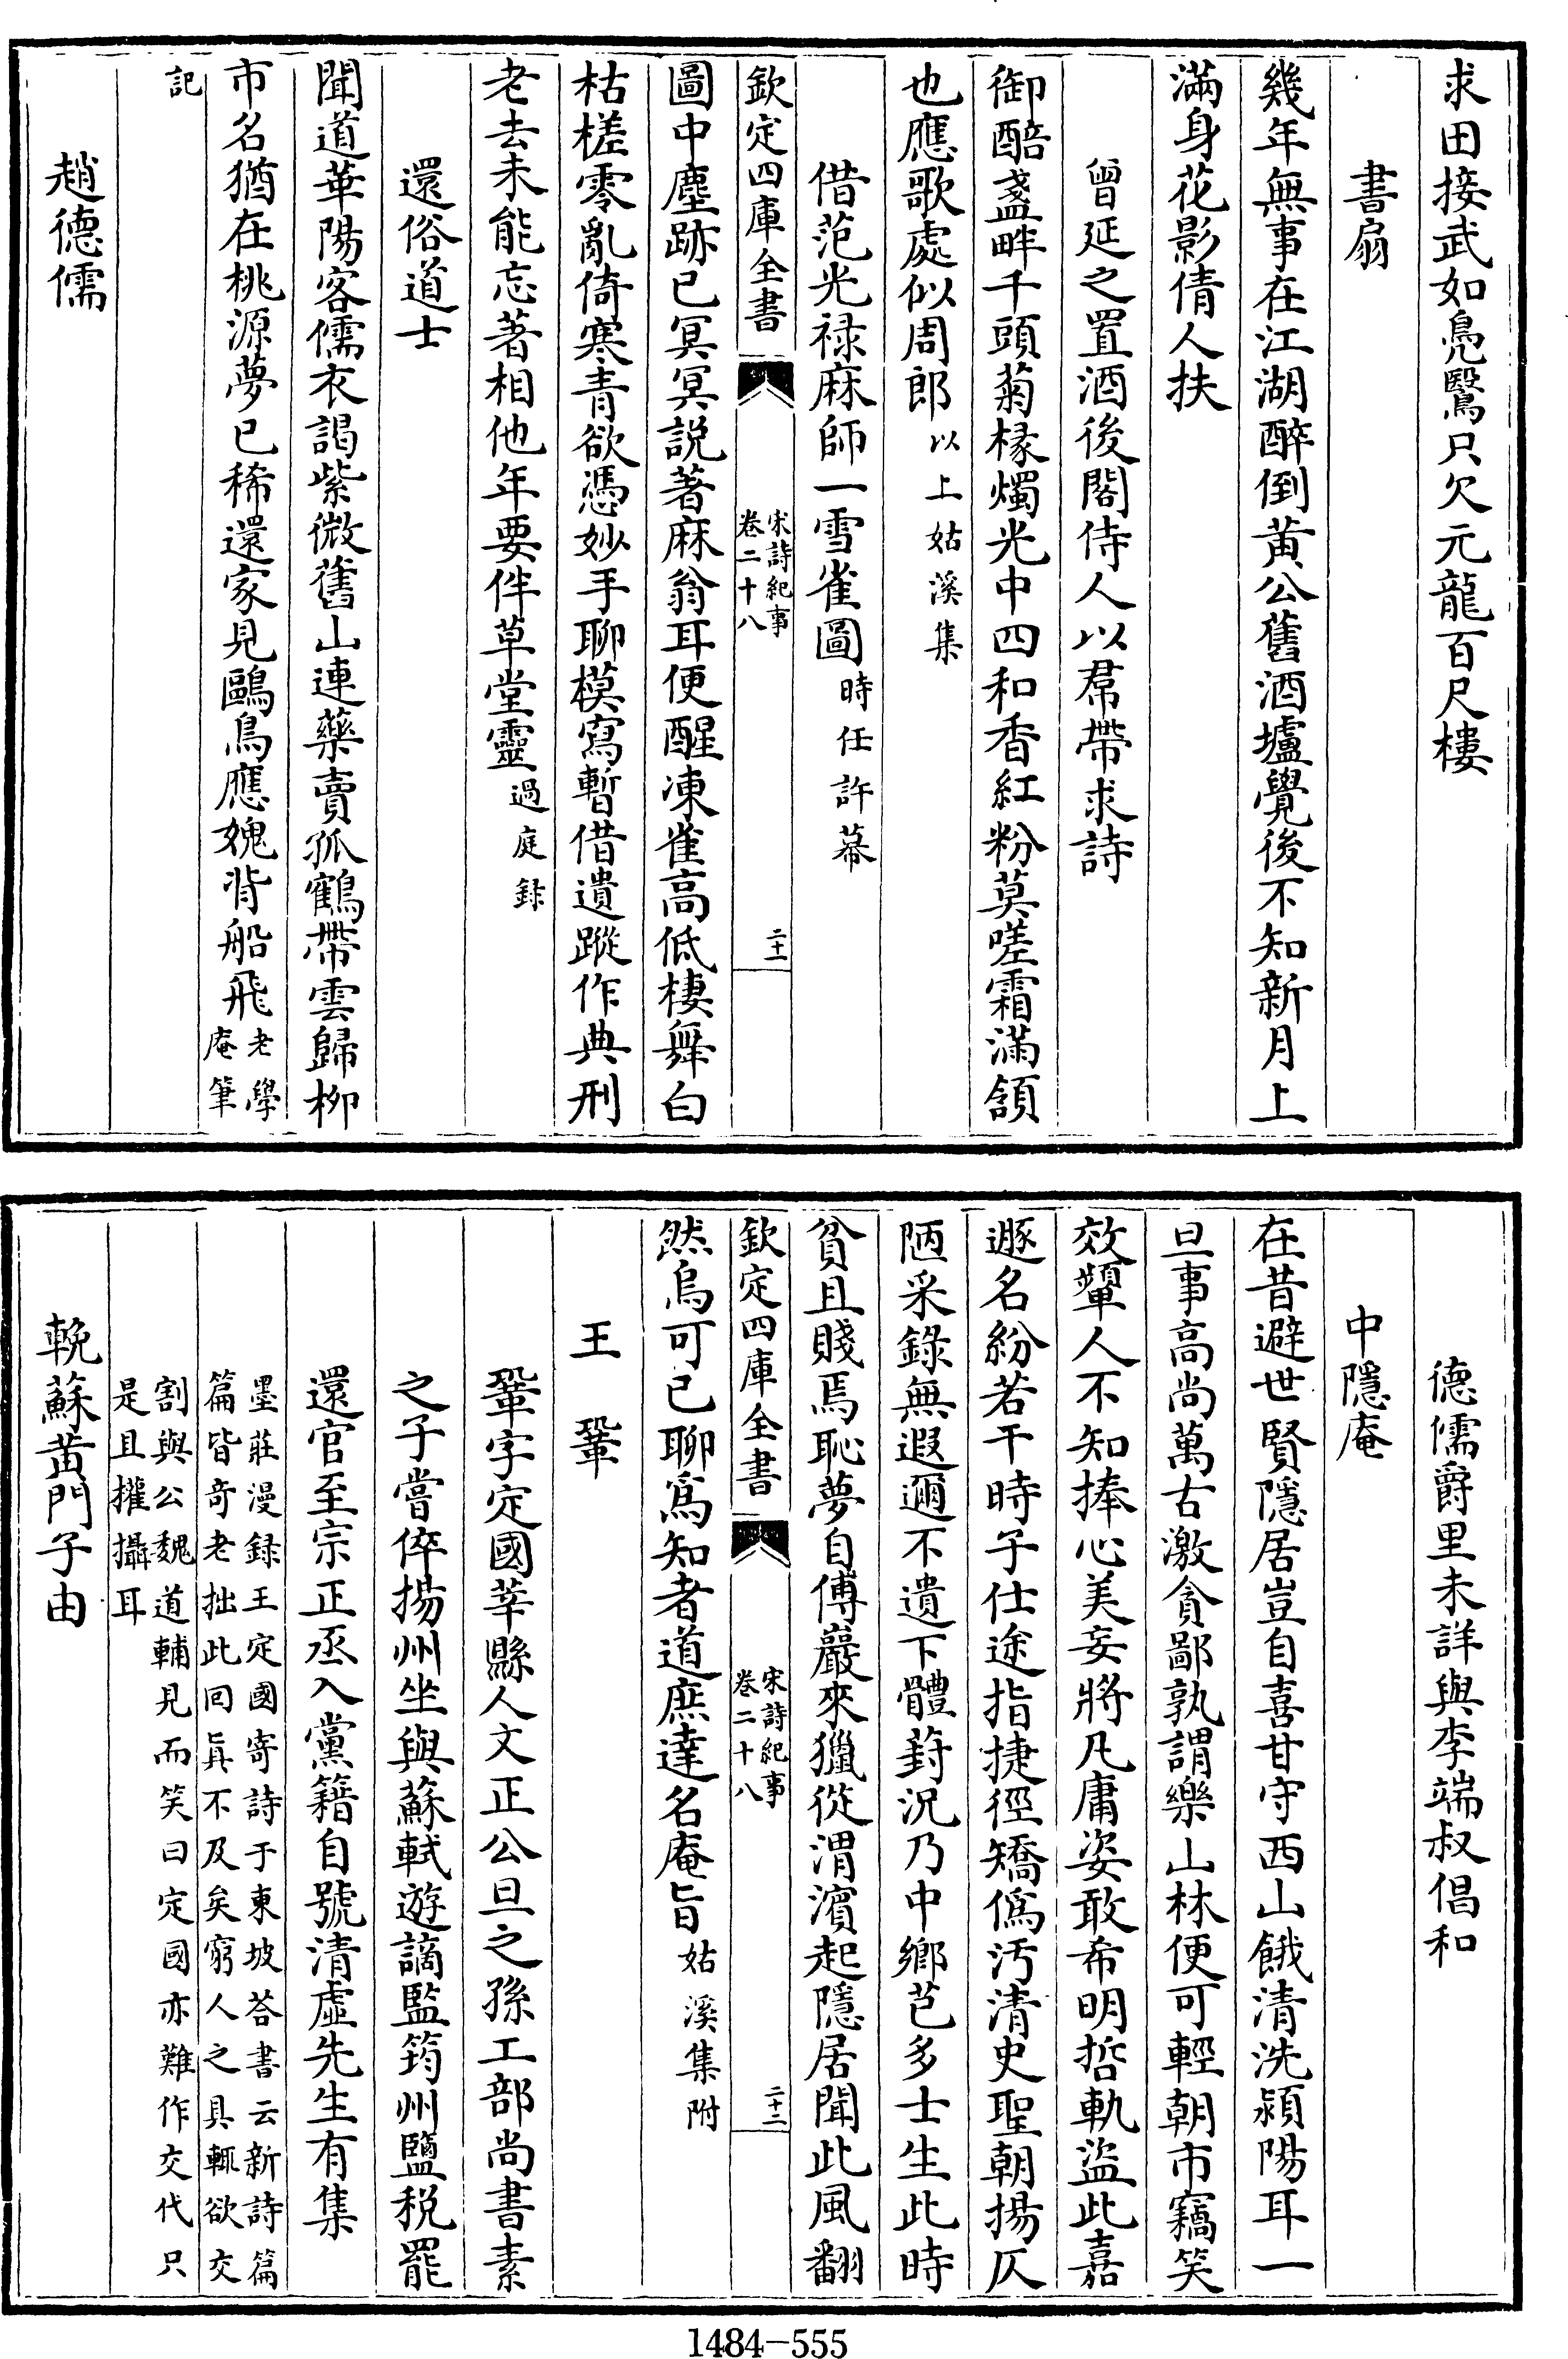 求田接武如鳬鷖只欠元龍百尺樓
書扇
幾年無事在江湖醉倒黃公舊酒壚覺後不知新月上
滿身花影倩人扶
曾延之置酒後閤侍人以帬帶求詩
御醅盞畔千頭菊椽燭光中四和香紅粉莫嗟霜滿頷
也應歌處似周郎以上姑溪集
借范光祿麻師一雪雀圖時任許幕
欽定四庫全書
宋詩紀事
卷二十八
二十一
圖中塵跡已冥冥説著麻翁耳便醒凍雀高低棲舞白
枯槎零亂倚寒青欲憑妙手聊模寫暫借遺蹤作典刑
老去未能忘著相他年要伴草堂靈過庭録
還俗道士
聞道華陽客儒衣謁紫微舊山連藥賣孤鶴帶雲歸柳
市名猶在桃源夢已稀還家見鷗鳥應媿背船飛老學
庵筆
記
趙德儒
德儒爵里未詳與李端叔倡和
中隱庵
在昔避世賢隱居豈自喜甘守西山餓清洗潁陽耳一
旦事高尚萬古激貪鄙孰謂樂山林便可輕朝市竊笑
效顰人不知捧心美妄將凡庸姿敢希明哲軌盜此嘉
遯名紛若干時子仕途指捷徑矯僞汚清史聖朝揚仄
陋采錄無遐邇不遺下體葑况乃中鄉芑多士生此時
貧且賤焉恥夢自傅巖來獵從渭濱起隱居聞此風翻
欽定四庫全書
宋詩紀事
卷二十八
二十二
然烏可已聊爲知者道庶達名庵旨姑溪集附
王鞏
鞏字定國莘縣人文正公旦之孫工部尚書素
之子嘗倅揚州坐與蘇軾遊謫監筠州鹽税罷
還官至宗正丞入黨籍自號清虛先生有集
墨莊漫録王定國寄詩于東坡荅書云新詩篇
篇皆竒老拙此囘眞不及矣窮人之具輒欲交
割與公魏道輔見而笑曰定國亦難作交代只
是且攉攝耳
輓蘇黃門子由
1484-555